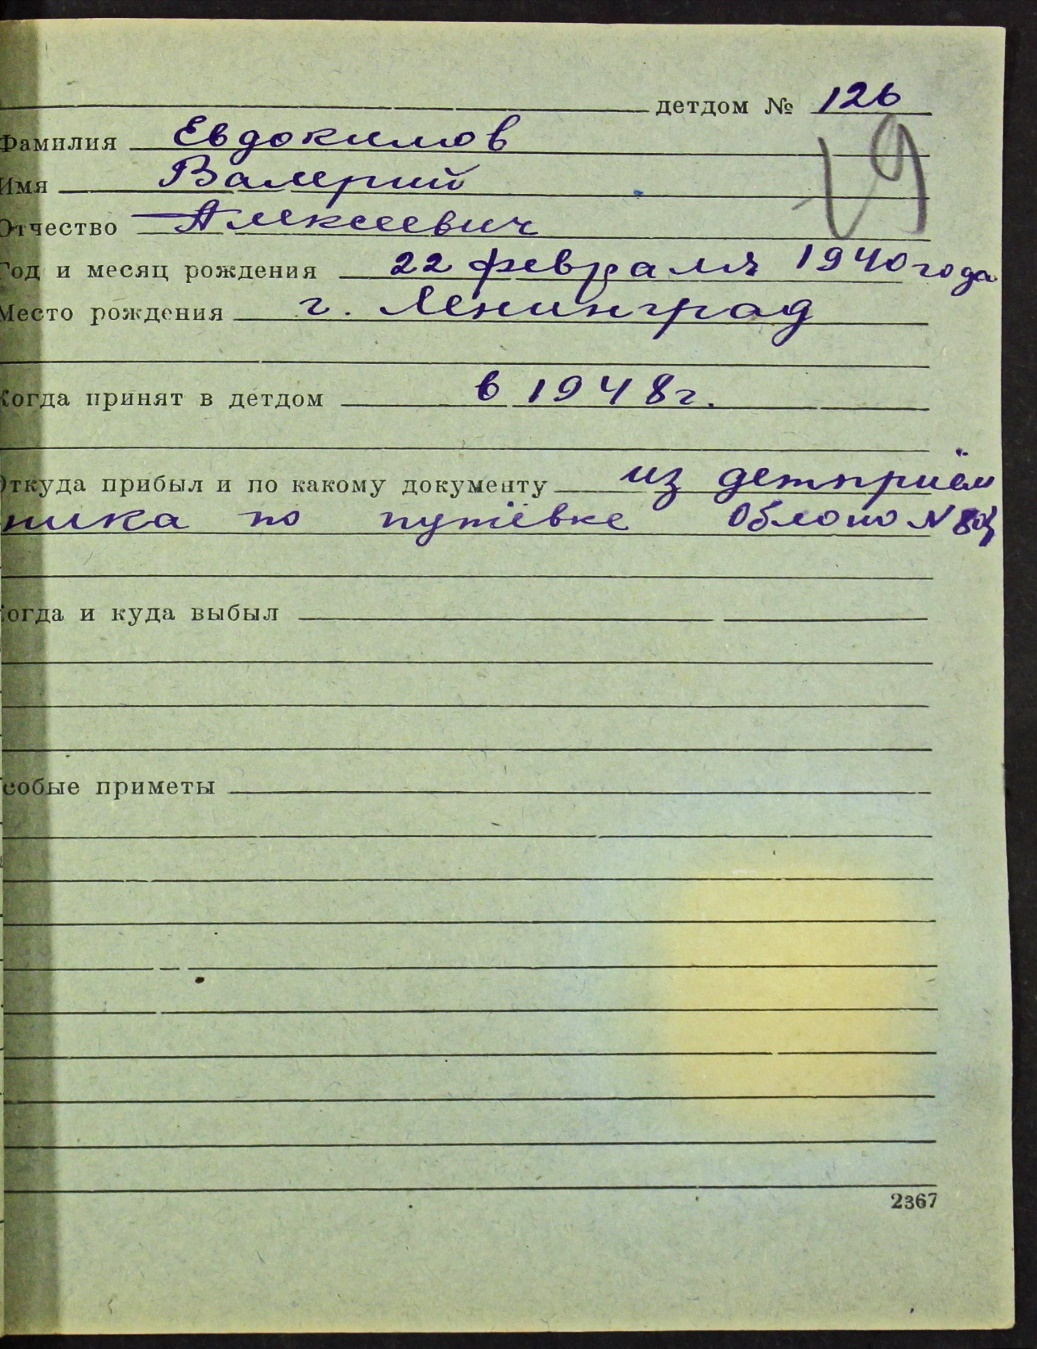 детдом № 126
19
Фамилия Евдокимов
Имя Валерий
Отчество Алексеевич
Год и месяц рождения 22 февраля 1940 года
Место рождения г. Ленинград
Когда принят в детдом в 1948 г.
Откуда прибыл и по какому документу из детприём
ника по путёвке Облоно N
Когда и куда выбыл
собые приметы
2367